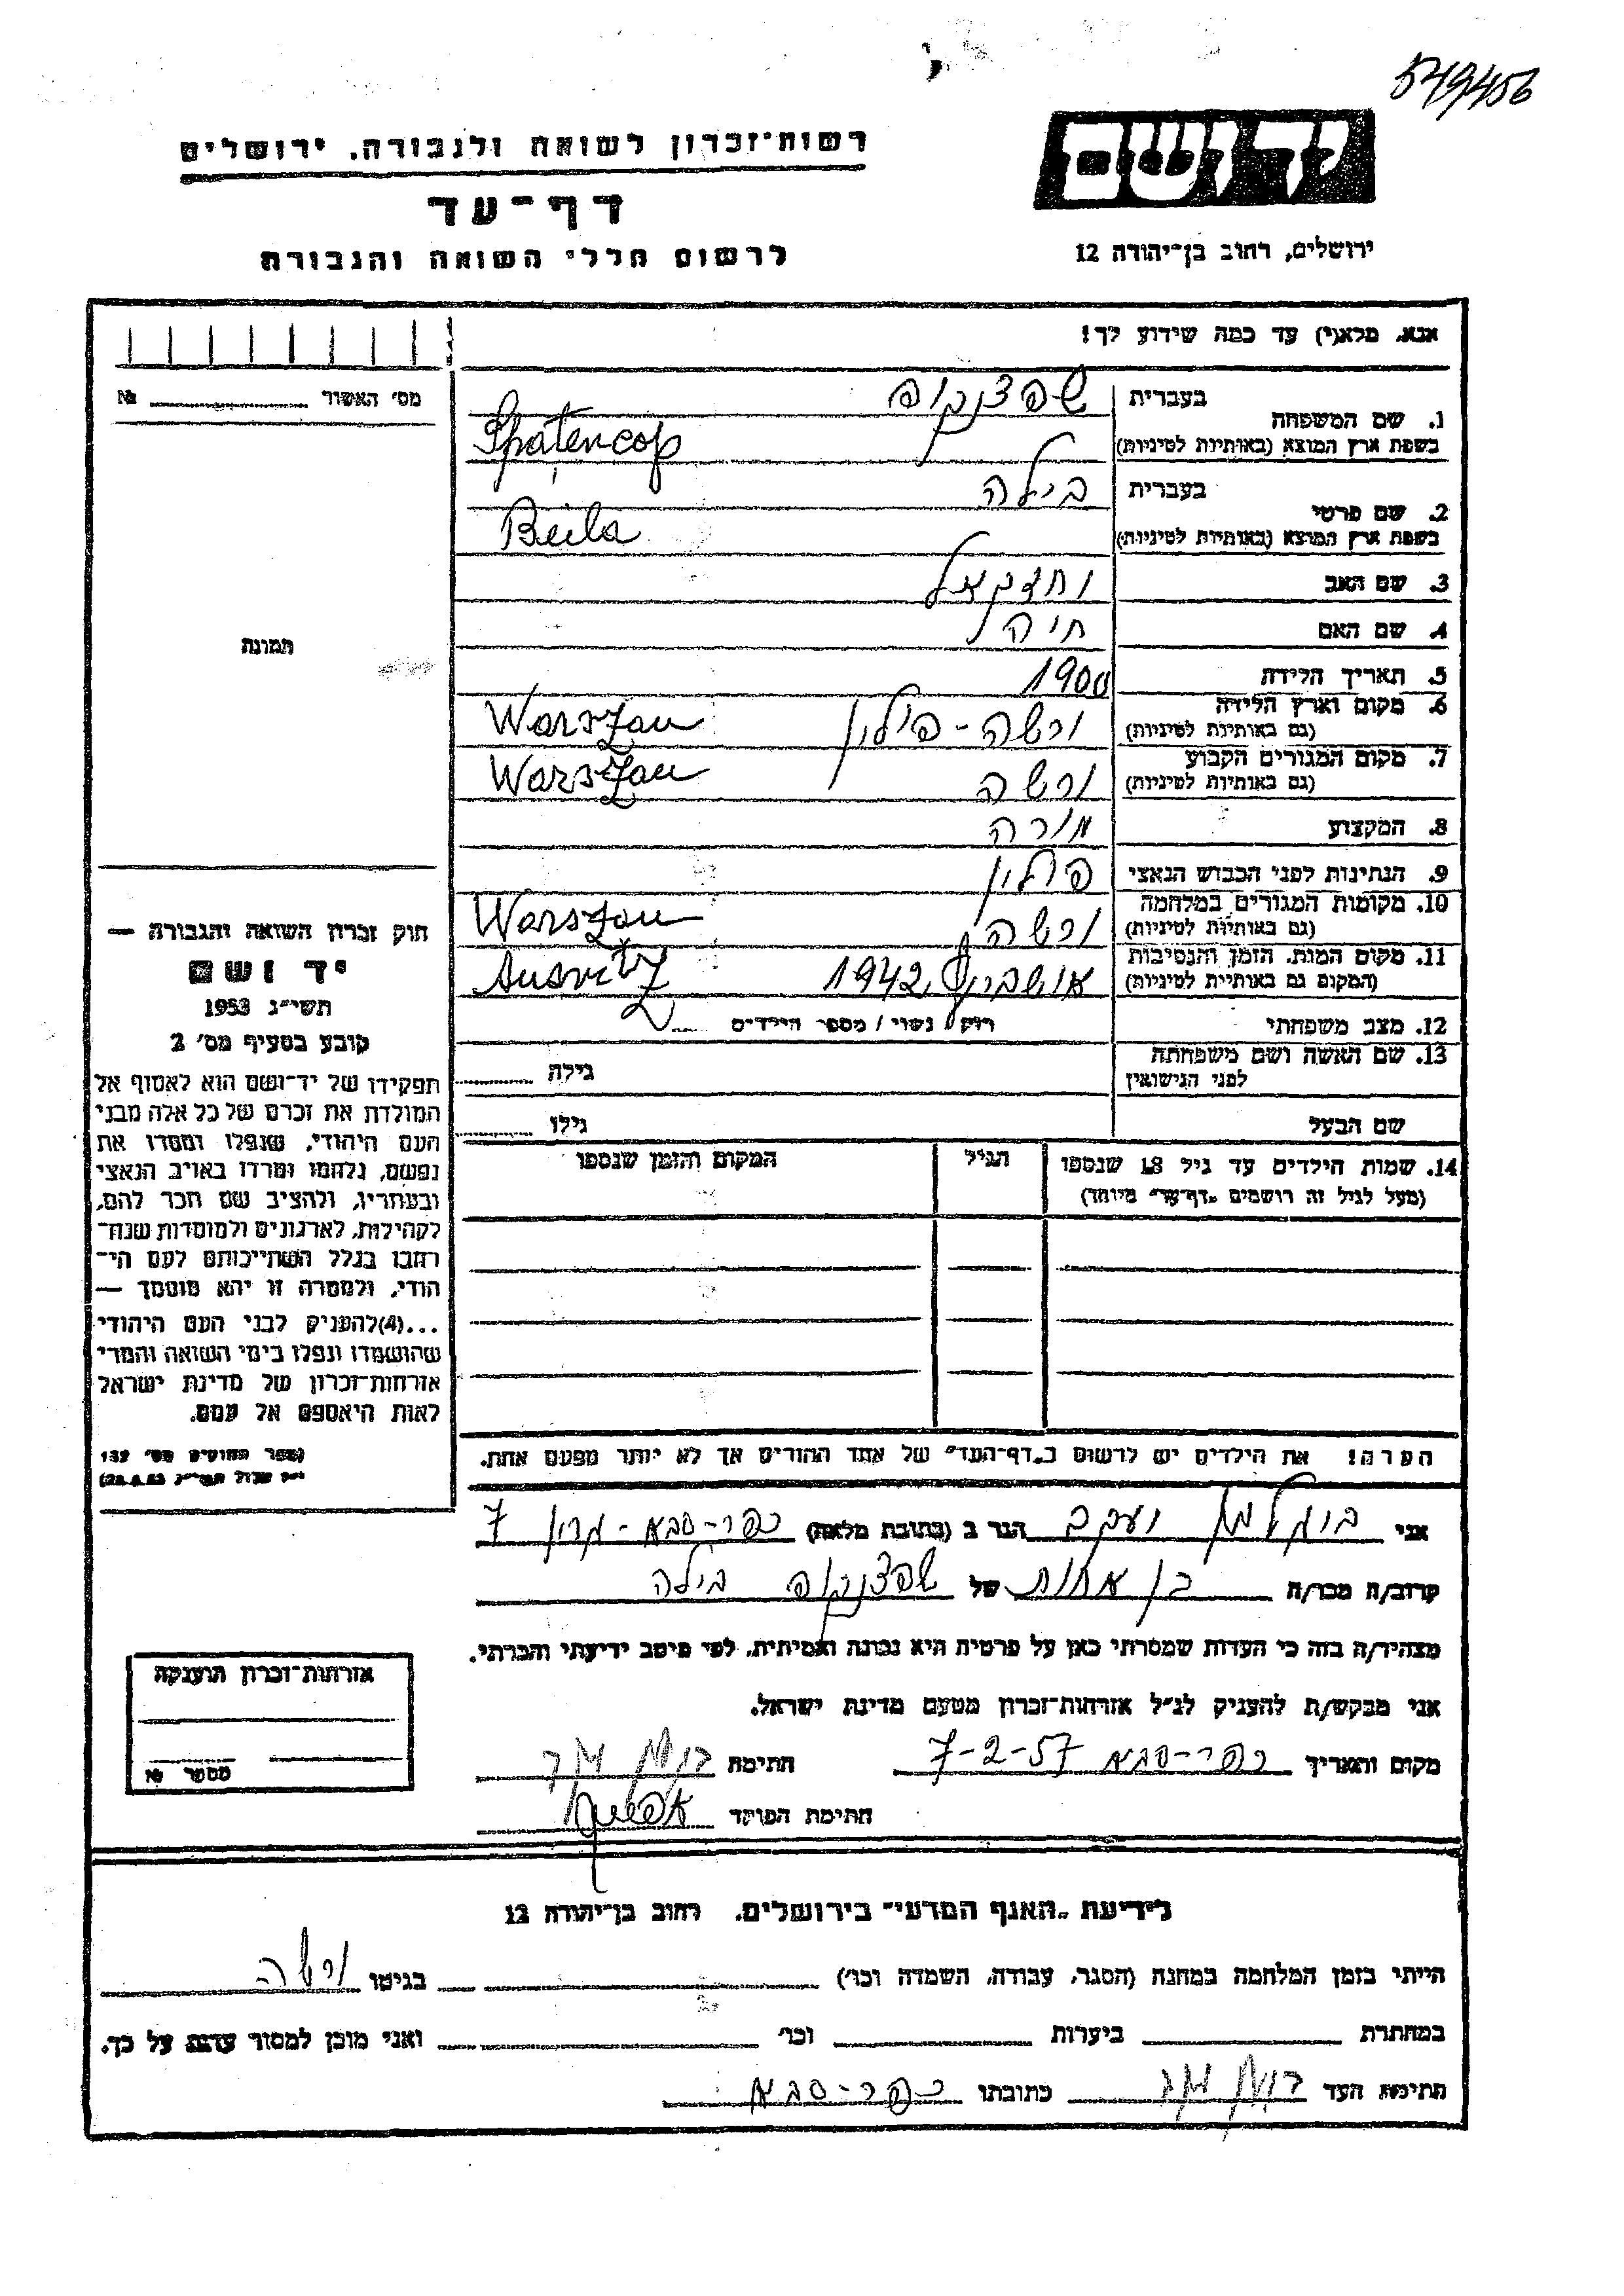 549456
יד ושם
רשות־זכרון לשואה ולגבורה, ירושלים
דף־עד
לרשום חללי השואה והגבורה
ירושלים, רחוב בן־יהודה 12
אנא, מלא(י) עד כמה שידוע לך!
מס׳ האשור № 
1. שם המשפחה
בעברית שפצנקופ
בשפת ארץ המוצא (באותיות לטיניות) Shpatencop
2. שם פרטי
בעברית בילה
בשפת ארץ המוצא (באותיות לטיניות) Beila
3. שם האב יחזקאל
4. שם האם חיה
תמונה
5. תאריך הלידה 1900
6. מקום וארץ הלידה ורשה - פולין Warszau
(גם באותיות לטיניות)
7. מקום המגורים הקבוע ורשה Warszau
(גם באותיות לטיניות)
8. המקצוע מורה
9. הנתינות לפני הכבוש הנאצי פולין
10. מקומות המגורים במלחמה ורשה Warszau
(גם באותיות לטיניות)
11. מקום המות, הזמן והנסיבות 1942
(המקום גם באותיות לטיניות)
12. מצב משפחתי רווק / נשוי / מספר הילדים
13. שם האשה ושם משפחתה גילה
לפני הנישואין
שם הבעל גילו
14. שמות הילדים עד גיל 18 שנספו הגיל המקום והזמן שנספו
(מעל לגיל זה רושמים „דף־עד״ מיוחד)
הערה! את הילדים יש לרשום ב„דף־העד״ של אחד ההורים אך לא יותר מפעם אחת.
חוק זכרון השואה והגבורה —
יד ושם
תשי״ג 1953
קובע בסעיף מס׳ 2
תפקידו של יד־ושם הוא לאסוף אל
המולדת את זכרם של כל אלה מבני
העם היהודי, שנפלו ומסרו את
נפשם, נלחמו ומרדו באויב הנאצי
ובעוזריו, ולהציב שם וזכר להם,
לקהילות, לארגונים ולמוסדות שנח־
רבו בגלל השתייכותם לעם הי־
הודי, ולמטרה זו יהא מוסמך —
...(4)להעניק לבני העם היהודי
שהושמדו ונפלו בימי השואה והמרי
אזרחות־זכרון של מדינת ישראל
לאות היאספם אל עמם.
(ספר החוקים מס׳ 132
אני יעקב הגר ב (כתובת מלאה) כפר-סבא - 7
קרוב/ה מכר/ה בן אחות של שפצנקופ בילה
מצהיר/ה בזה כי העדות שמסרתי כאן על פרטיה היא נכונה ואמיתית, לפי מיטב ידיעתי והכרתי.
אני מבקש/ת להעניק לנ״ל אזרחות־זכרון מטעם מדינת ישראל.
מקום ותאריך כפר-סבא 7-2-57 חתימה
חתימת הפוקד
אזרחות־זכרון הוענקה
מספר №
לידיעת „האגף המדעי״ בירושלים, רחוב בן־יהודה 12
הייתי בזמן המלחמה במחנה (הסגר, עבודה, השמדה וכו׳) בגיטו ורשה
במחתרת ביערות וכו׳ ואני מוכן למסור עדות על כך.
חתימת העד כתובתו כפר-סבא